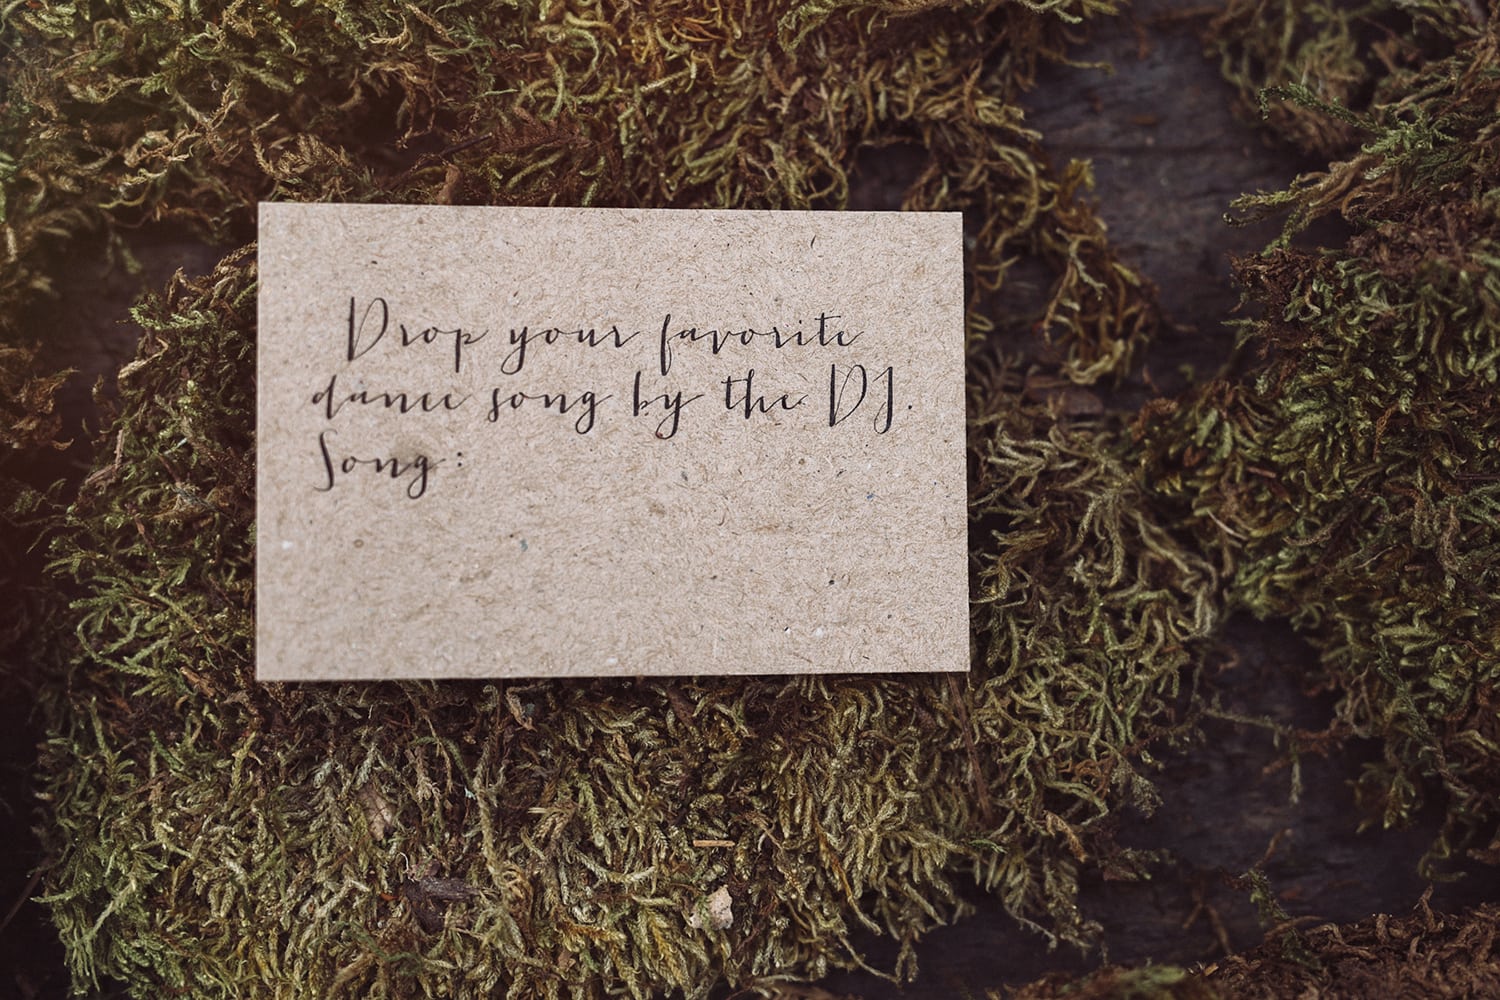 Drop your favorite
dance song by the DJ.
Song: